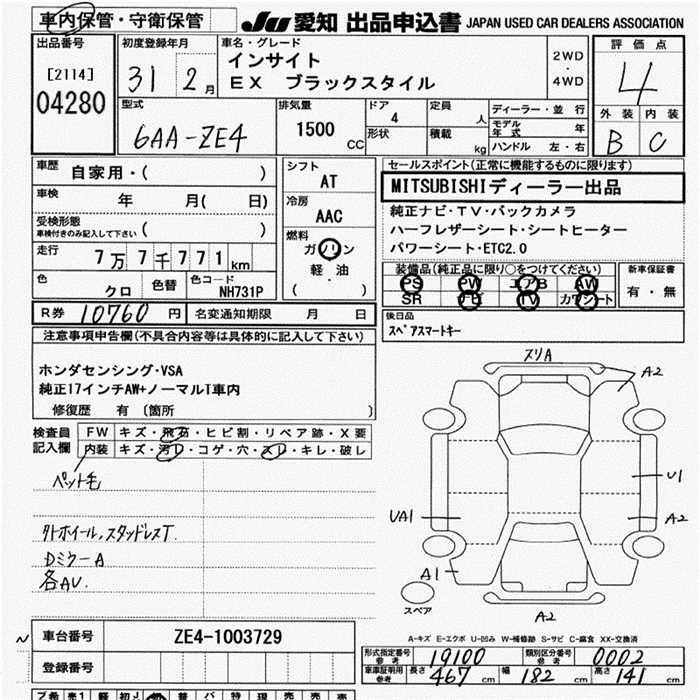 車内保管・守衛保管 JU 愛知 出品申込書 JAPAN USED CAR DEALERS ASSOCIATION
出品番号
[2114]
04280
初度登録年月
31 2月
車名・グレード
インサイト
EX ブラックスタイル
2WD
・
4WD
評価点
4
外装 内装
B C
型式
6AA-ZE4
排気量
1500 CC
ドア
4
形状
定員
人
積載
kg
ディーラー・並行
モデル年式 年
ハンドル 左・右
車歴 自家用・( )
車検 年 月( 日)
受検形態
車検付きのみ記入して下さい ( )
走行 7万7千771km
色 クロ 色替 色コード NH731P
シフト
AT
冷房
AAC
燃料
ガソリン
軽・油
( )
セールスポイント(正常に機能するものに限ります)
MITSUBISHIディーラー出品
純正ナビ・TV・バックカメラ
ハーフレザーシート・シートヒーター
パワーシート・ETC2.0
装備品(純正品に限り○をつけてください)
PS PW エアB AW
SR ナビ TV カワシート
新車保証書
有・無
R券 10760円 名変通知期限 月 日
後日品
スペアスマートキー
注意事項申告欄(不具合内容等は具体的に記入して下さい)
ホンダセンシング・VSA
純正17インチAW+ノーマルT車内
修復歴 有 〔箇所 〕
検査員記入欄
FW キズ・飛石・ヒビ割・リペア跡・X要
内装 キズ・汚レ・コゲ・穴・スレ・キレ・破レ
ペット毛
外ホイール,スタッドレスT.
Dミラー A
各AU.
スリA
A2
U1
UA1
A2
A1
スペア
A2
A-キズ E-エクボ U-凹み W-補修跡 S-サビ C-腐食 XX-交換済
車台番号 ZE4-1003729
登録番号
形式指定番号 参考 19100 類別区分番号 参考 0002
車庫証明用 参考 長さ 467cm 幅 182cm 高さ 141cm